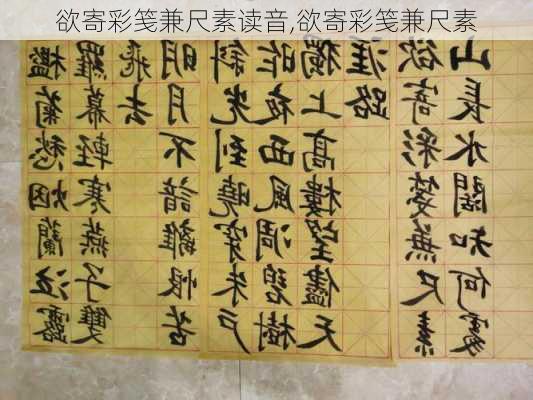 欲寄彩笺兼尺素读音,欲寄彩笺兼尺素
檻菊愁烟蘭泣露
羅幕輕寒燕子雙
飛去
明月不諳離恨苦
斜光到曉穿朱戶
昨夜西風凋碧樹
獨上高樓望盡天
涯路
欲寄彩箋無尺素
山長水闊知何處